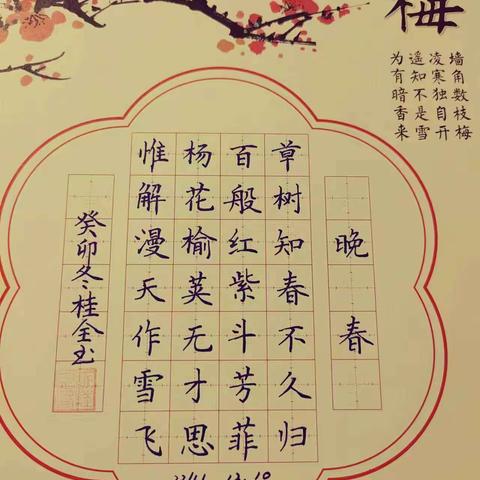 梅
墙角数枝梅
凌寒独自开
遥知不是雪
为有暗香来
晚春
草树知春不久归
百般红紫斗芳菲
杨花榆荚无才思
惟解漫天作雪飞
癸卯冬桂全玉